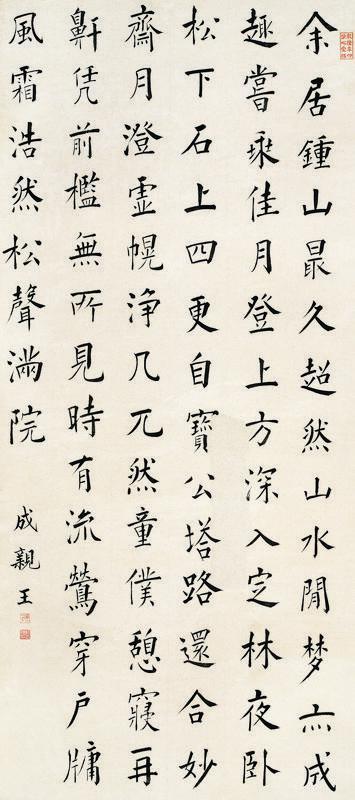 余居鍾山最久超然山水閒梦亦成
趣嘗乘佳月登上方深入定林夜卧
松下石上四更自寶公塔路還合妙
齋月澄虛幌淨几兀然童僕憩寢再
鼾凭前檻無所見時有流鶯穿戶牖
風霜浩然松聲滿院
成親王